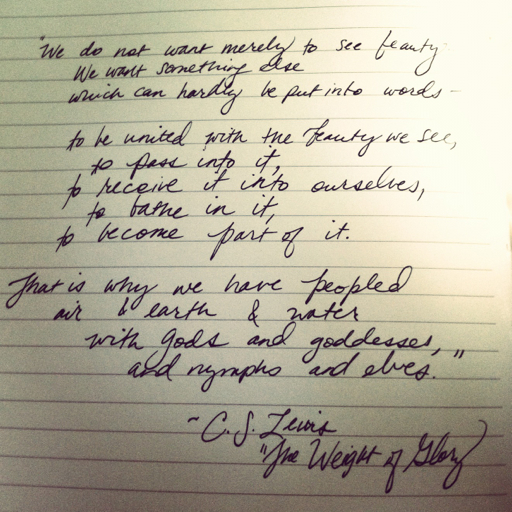 "We do not want merely to see beauty
We want something else
which can hardly be put into words -
to be united with the beauty we see,
to pass into it,
to receive it into ourselves,
to bathe in it,
to become part of it.
That is why we have peopled
air & earth & water
with gods and goddesses,
and nymphs and elves."
~ C. S. Lewis
"The Weight of Glory